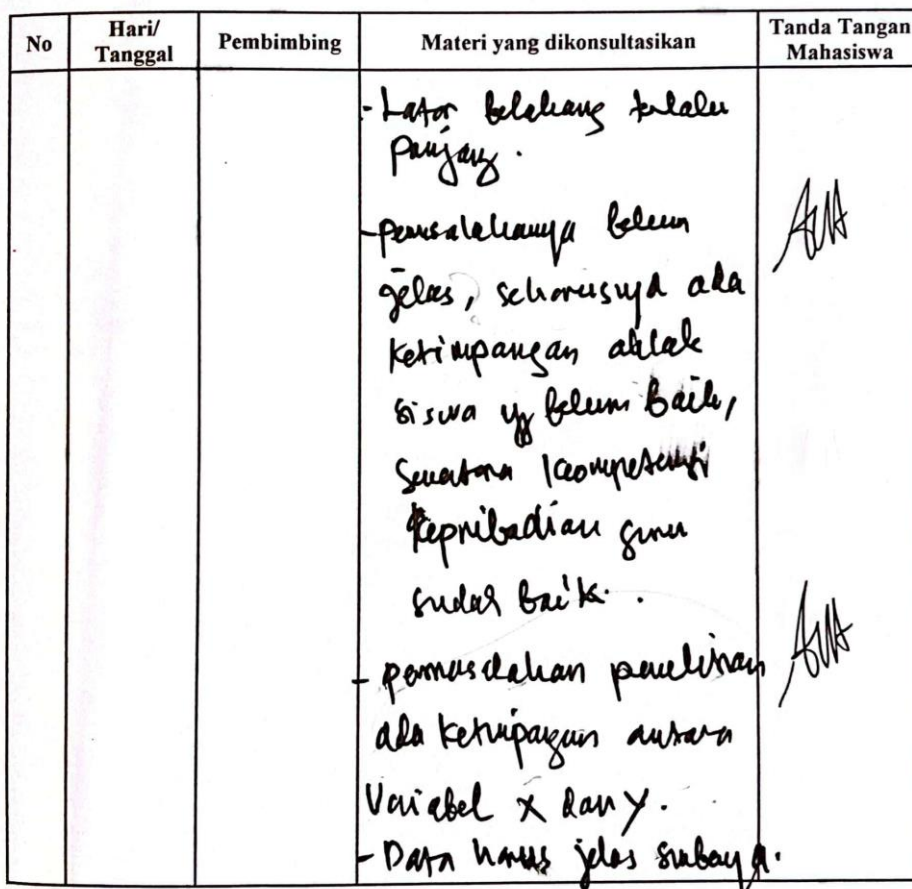 No
Hari/
Tanggal
Pembimbing
Materi yang dikonsultasikan
Tanda Tangan
Mahasiswa
- Latar belakang terlalu
panjang.
- permasalahannya belum
jelas, seharusnya ada
ketimpangan akhlak
siswa yg belum baik,
sementara kompetensi
kepribadian guru
sudah baik.
- permasalahan penelitian
ada ketimpangan antara
Variabel x dan y.
- Data harus jelas